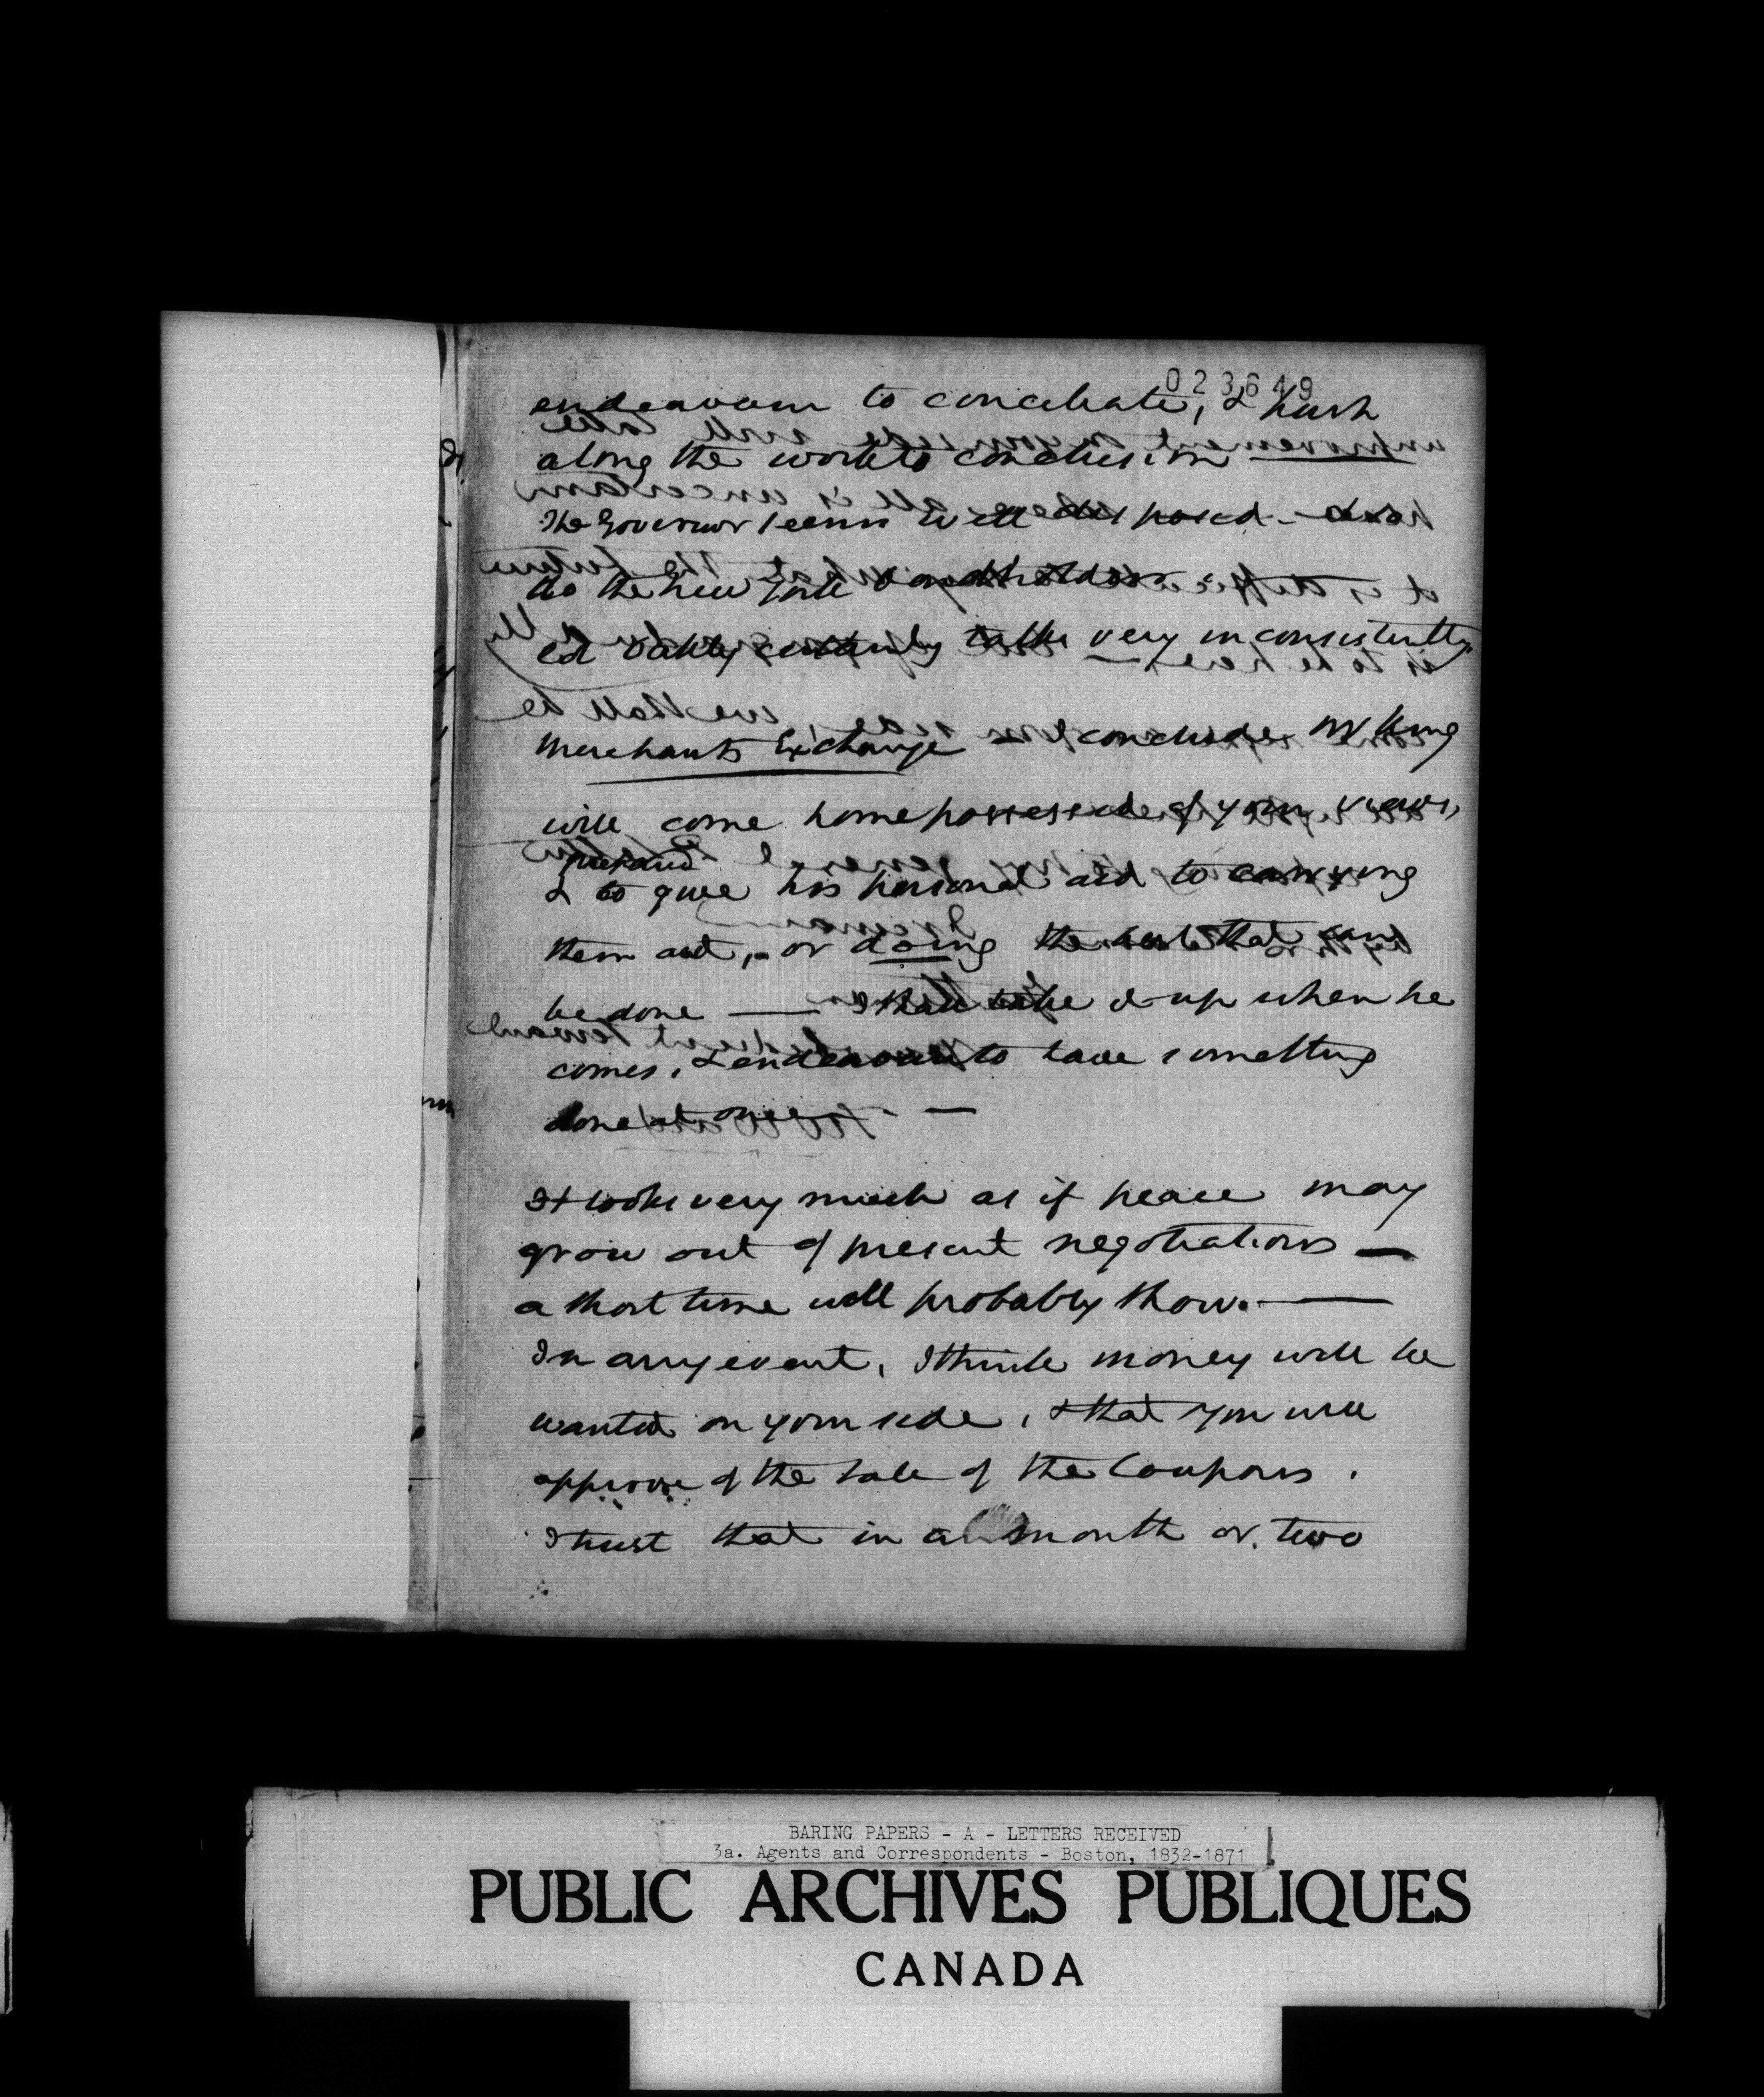 023649
endeavour to conciliate, & push
along the work to conclusion
The Governor seems well disposed - also
do the New York bondholders.
Ed Oakley certainly talks very inconsistently.
Merchants Exchange - I conclude Mr King
will come home possessed of your views,
prepared
& to give his personal aid to carrying
them out, - or doing the best that can
be done — I shall take it up when he
comes, & endeavour to have something
done at once - —
It looks very much as if peace may
grow out of present negotiations —
a short time will probably show. —
In any event, I think money will be
wanted on your side, & that you will
approve of the sale of the Coupons.
I trust that in a month or two
BARING PAPERS - A - LETTERS RECEIVED
3a. Agents and Correspondents - Boston, 1832-1871
PUBLIC ARCHIVES PUBLIQUES
CANADA